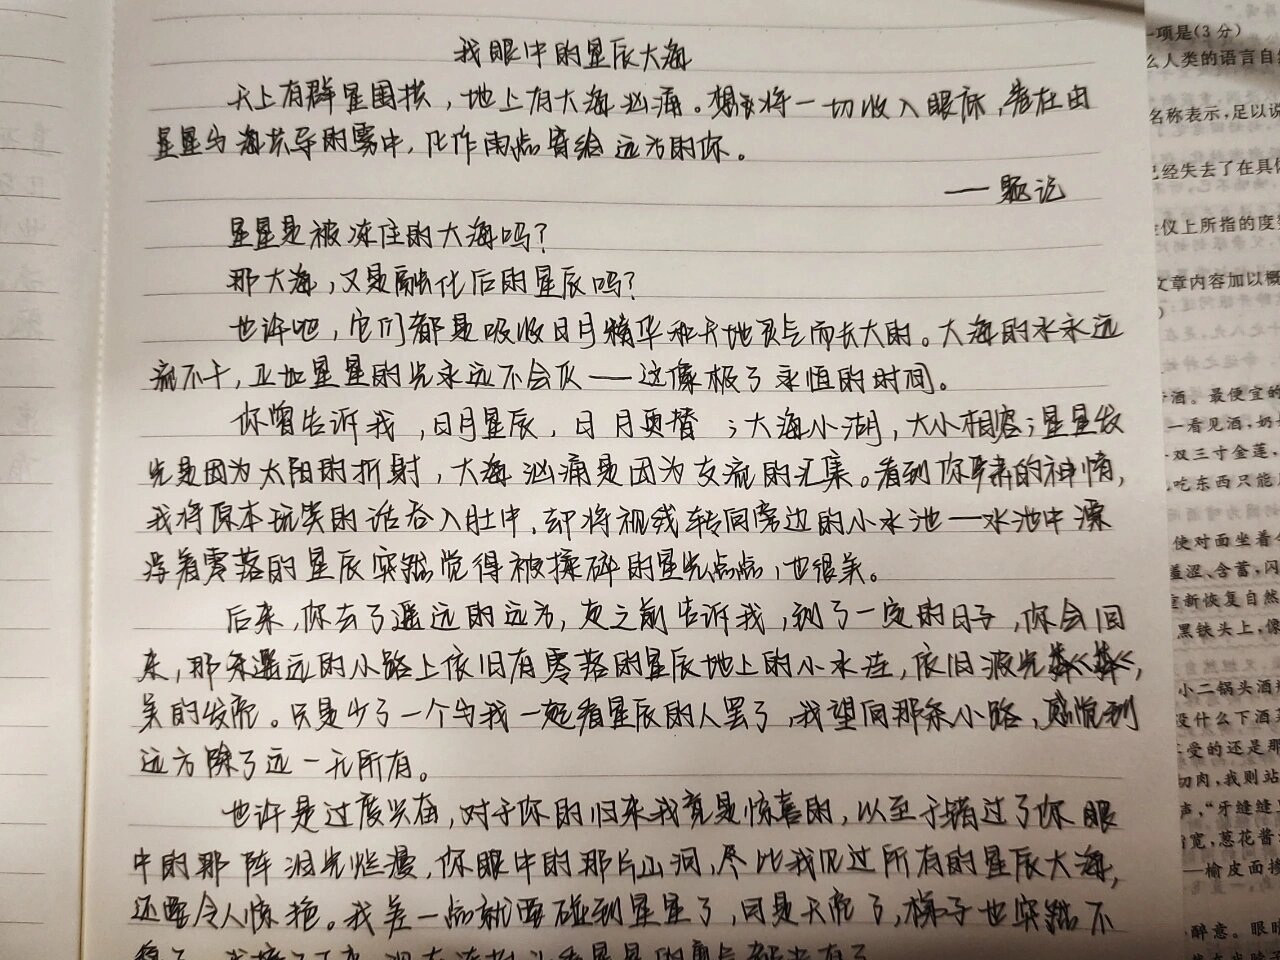 我眼中的星辰大海
天上有群星围拱，地上有大海汹涌。想我将一切收入眼底，告在由
星星与海共导的雾中，化作雨点寄给远方的你。
——题记
星星是被冻住的大海吗？
那大海，又是融化后的星辰吗？
也许吧，它们都是吸收日月精华和天地灵气而长大的。大海的水永远
流不干，正如星星的光永远不会灰——这像极了永恒的时间。
你曾告诉我，日月星辰，日月更替；大海小湖，大小相容；星星发
光是因为太阳的折射，大海汹涌是因为支流的汇集。看到你肃的神情，
我将原本玩笑的话吞入肚中，却将视线转向旁边的小水池——水池中漂
浮着零落的星辰突然觉得被揉碎的星光点点，也很美。
后来，你去了遥远的远方，走之前告诉我，到了一定的日子，你会回
来，那条遥远的小路上依旧有零落的星辰地上的小水洼，依旧波光粼粼，
美的发亮。只是少了一个与我一起看星辰的人罢了，我望向那条小路，感慨到
远方除了远一无所有。
也许是过度兴奋，对于你的归来我竟是惊喜的，以至于错过了你眼
中的那阵泪光烂漫，你眼中的那片山河，尽比我见过所有的星辰大海，
还要令人惊艳。我差一点就要碰到星星了，可是天亮了，梯子也突然不
名称表示，足以说
文章内容加以概
酒。最便宜的
一看见酒，奶
双三寸金莲，
吃东西只能
使对面坐着
羞涩、含蓄，闪
重新恢复自然
黑铁头上，像
小二锅头酒
没什么下酒
享受的还是那
切肉，我则站
声，“牙缝缝
宽，葱花酱
——榆皮面
醉意。眼